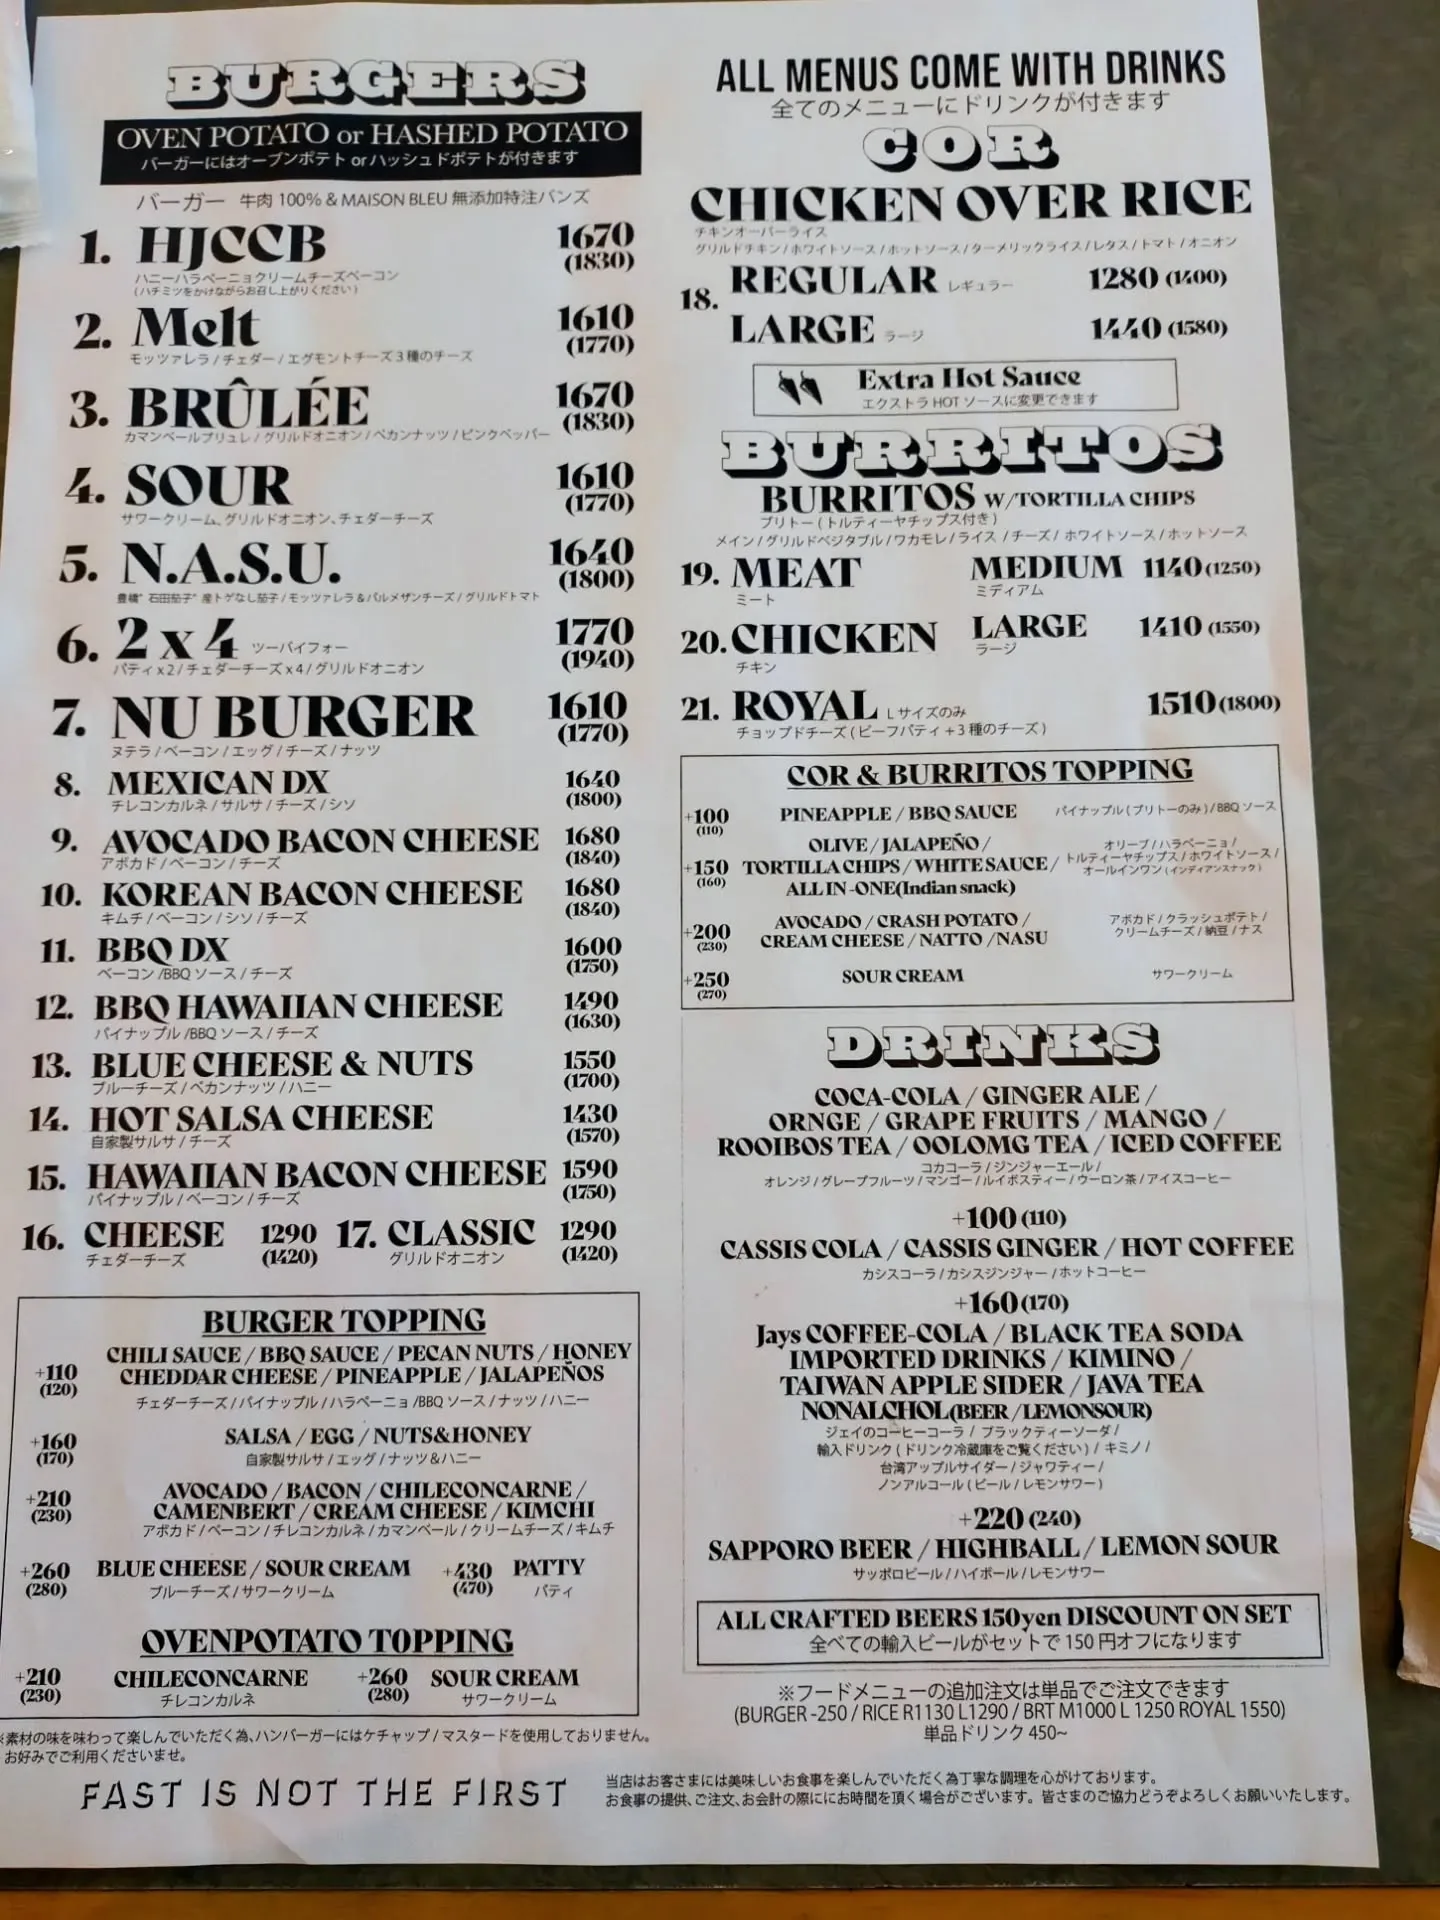 BURGERS
OVEN POTATO or HASHED POTATO
バーガーにはオーブンポテト orハッシュドポテトが付きます
バーガー 牛肉 100% & MAISON BLEU 無添加特注バンズ
1. HJCCB 1670 (1830)
ハニーハラペーニョクリームチーズベーコン
(ハチミツをかけながらお召し上がりください)
2. Melt 1610 (1770)
モッツァレラ / チェダー / エグモントチーズ 3 種のチーズ
3. BRÛLÉE 1670 (1830)
カマンベールブリュレ / グリルドオニオン / ペカンナッツ / ピンクペッパー
4. SOUR 1610 (1770)
サワークリーム、グリルドオニオン、チェダーチーズ
5. N.A.S.U. 1640 (1800)
豊橋" 石田茄子" 産トゲなし茄子 / モッツァレラ & パルメザンチーズ / グリルドトマト
6. 2 x 4 ツーバイフォー 1770 (1940)
パティ x2 / チェダーチーズ x4 / グリルドオニオン
7. NU BURGER 1610 (1770)
ヌテラ / ベーコン / エッグ / チーズ / ナッツ
8. MEXICAN DX 1640 (1800)
チレコンカルネ / サルサ / チーズ / シソ
9. AVOCADO BACON CHEESE 1680 (1840)
アボカド / ベーコン / チーズ
10. KOREAN BACON CHEESE 1680 (1840)
キムチ / ベーコン / シソ / チーズ
11. BBQ DX 1600 (1750)
ベーコン /BBQ ソース / チーズ
12. BBQ HAWAIIAN CHEESE 1490 (1630)
パイナップル /BBQ ソース / チーズ
13. BLUE CHEESE & NUTS 1550 (1700)
ブルーチーズ / ペカンナッツ / ハニー
14. HOT SALSA CHEESE 1430 (1570)
自家製サルサ / チーズ
15. HAWAIIAN BACON CHEESE 1590 (1750)
パイナップル / ベーコン / チーズ
16. CHEESE 1290 (1420) 17. CLASSIC 1290 (1420)
チェダーチーズ グリルドオニオン
BURGER TOPPING
+110 (120) CHILI SAUCE / BBQ SAUCE / PECAN NUTS / HONEY
CHEDDAR CHEESE / PINEAPPLE / JALAPEÑOS
チェダーチーズ / パイナップル / ハラペーニョ /BBQ ソース / ナッツ / ハニー
+160 (170) SALSA / EGG / NUTS&HONEY
自家製サルサ / エッグ / ナッツ & ハニー
+210 (230) AVOCADO / BACON / CHILECONCARNE /
CAMENBERT / CREAM CHEESE / KIMCHI
アボカド / ベーコン / チレコンカルネ / カマンベール / クリームチーズ / キムチ
+260 (280) BLUE CHEESE / SOUR CREAM +430 (470) PATTY
ブルーチーズ / サワークリーム パティ
OVENPOTATO TOPPING
+210 (230) CHILECONCARNE +260 (280) SOUR CREAM
チレコンカルネ サワークリーム
※素材の味を味わって楽しんでいただく為、ハンバーガーにはケチャップ / マスタードを使用しておりません。
お好みでご利用くださいませ。
FAST IS NOT THE FIRST
ALL MENUS COME WITH DRINKS
全てのメニューにドリンクが付きます
COR
CHICKEN OVER RICE
チキンオーバーライス
グリルドチキン / ホワイトソース / ホットソース / ターメリックライス / レタス / トマト / オニオン
18. REGULAR レギュラー 1280 (1400)
LARGE ラージ 1440 (1580)
Extra Hot Sauce
エクストラ HOT ソースに変更できます
BURRITOS
BURRITOS W/TORTILLA CHIPS
ブリトー ( トルティーヤチップス付き )
メイン / グリルドベジタブル / ワカモレ / ライス / チーズ / ホワイトソース / ホットソース
19. MEAT MEDIUM 1140 (1250)
ミート ミディアム
20. CHICKEN LARGE 1410 (1550)
チキン ラージ
21. ROYAL L サイズのみ 1510 (1800)
チョップドチーズ ( ビーフパティ + 3 種のチーズ )
COR & BURRITOS TOPPING
+100 (110) PINEAPPLE / BBQ SAUCE パイナップル ( ブリトーのみ ) / BBQ ソース
+150 (160) OLIVE / JALAPEÑO / オリーブ / ハラペーニョ /
TORTILLA CHIPS / WHITE SAUCE / トルティーヤチップス / ホワイトソース /
ALL IN -ONE(Indian snack) オールインワン ( インディアンスナック )
+200 (230) AVOCADO / CRASH POTATO / アボカド / クラッシュポテト /
CREAM CHEESE / NATTO /NASU クリームチーズ / 納豆 / ナス
+250 (270) SOUR CREAM サワークリーム
DRINKS
COCA-COLA / GINGER ALE /
ORNGE / GRAPE FRUITS / MANGO /
ROOIBOS TEA / OOLOMG TEA / ICED COFFEE
コカコーラ / ジンジャーエール /
オレンジ / グレープフルーツ / マンゴー / ルイボスティー / ウーロン茶 / アイスコーヒー
+100 (110)
CASSIS COLA / CASSIS GINGER / HOT COFFEE
カシスコーラ / カシスジンジャー / ホットコーヒー
+160 (170)
Jays COFFEE-COLA / BLACK TEA SODA
IMPORTED DRINKS / KIMINO /
TAIWAN APPLE SIDER / JAVA TEA
NONALCHOL(BEER /LEMONSOUR)
ジェイのコーヒーコーラ / ブラックティーソーダ /
輸入ドリンク ( ドリンク冷蔵庫をご覧ください ) / キミノ /
台湾アップルサイダー / ジャワティー /
ノンアルコール ( ビール / レモンサワー )
+220 (240)
SAPPORO BEER / HIGHBALL / LEMON SOUR
サッポロビール / ハイボール / レモンサワー
ALL CRAFTED BEERS 150yen DISCOUNT ON SET
全べての輸入ビールがセットで 150 円オフになります
※フードメニューの追加注文は単品でご注文できます
(BURGER -250 / RICE R1130 L1290 / BRT M1000 L 1250 ROYAL 1550)
単品ドリンク 450~
当店はお客さまには美味しいお食事を楽しんでいただく為丁寧な調理を心がけております。
お食事の提供、ご注文、お会計の際ににお時間を頂く場合がございます。皆さまのご協力どうぞよろしくお願いいたします。